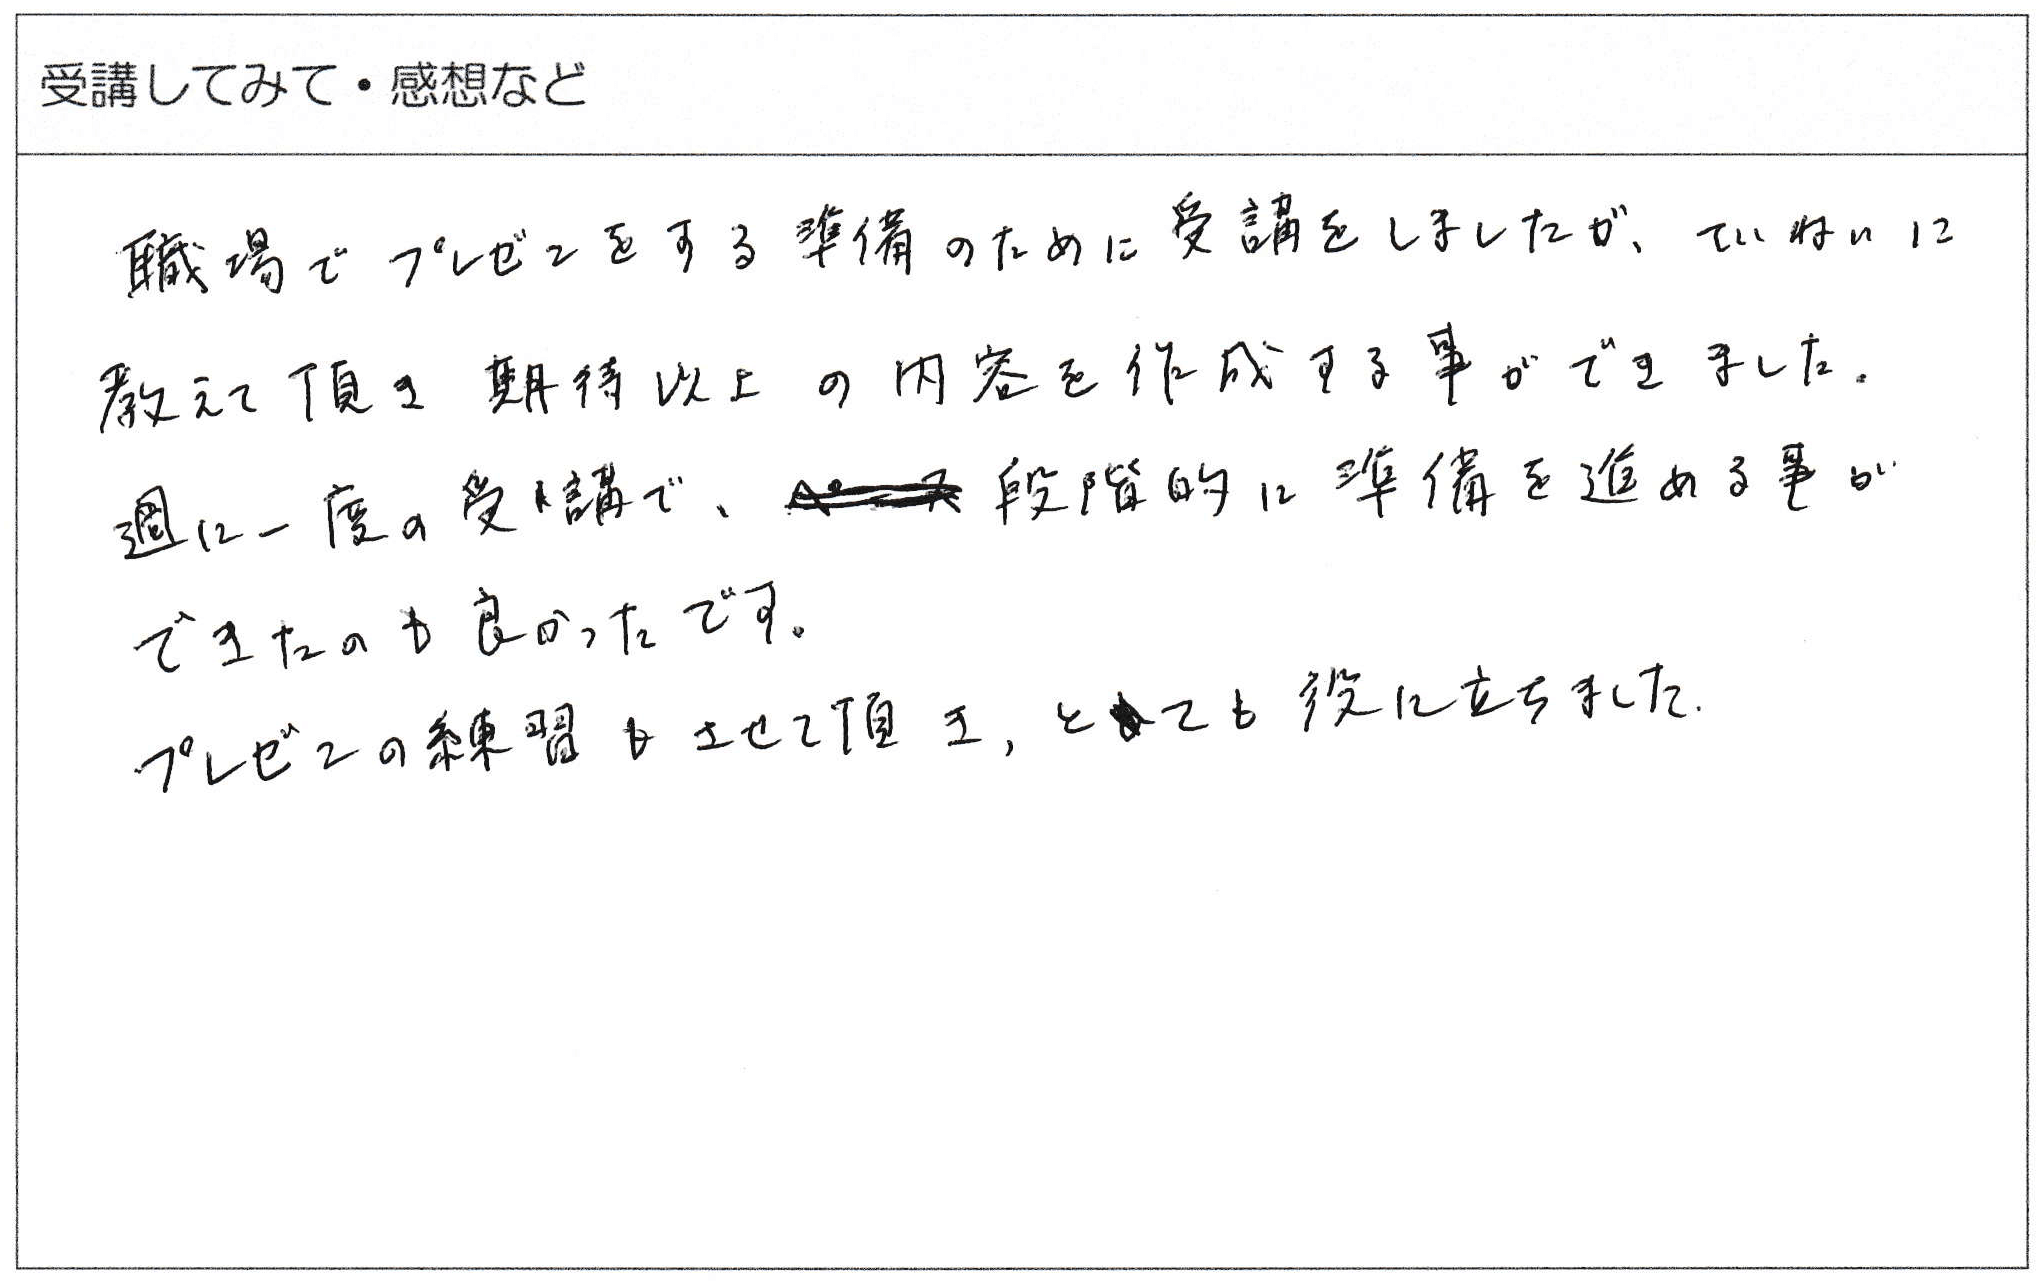 受講してみて・感想など
職場でプレゼンをする準備のために受講をしましたが、ていねいに
教えて頂き期待以上の内容を作成する事ができました。
週に一度の受講で、段階的に準備を進める事が
できたのも良かったです。
プレゼンの練習もさせて頂き、とても役に立ちました.